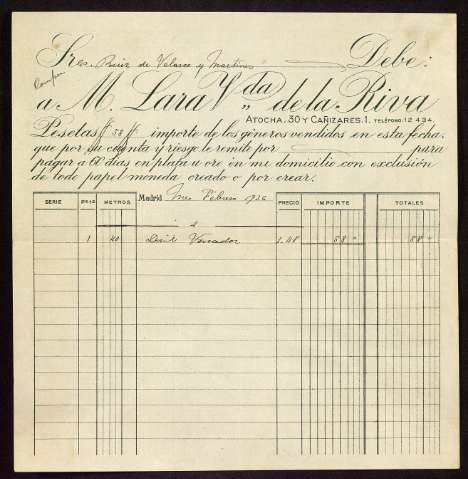 Sres. Ruiz de Velasco y Martinez Debe:
a M. Lara Vda de la Riva
ATOCHA, 30 Y CAÑIZARES, 1. TELÉFONO, 12434.
Pesetas # 58 # importe de los géneros vendidos en esta fecha,
que por su cuenta y riesgo le remite por para
pagar a 60 dias en plata u oro en mi domicilio con exclusión
de todo papel-moneda creado o por crear.
SERIE PZAS METROS Madrid Febrero 1926 PRECIO IMPORTE TOTALES
1 40 1,45 58 " 58 "